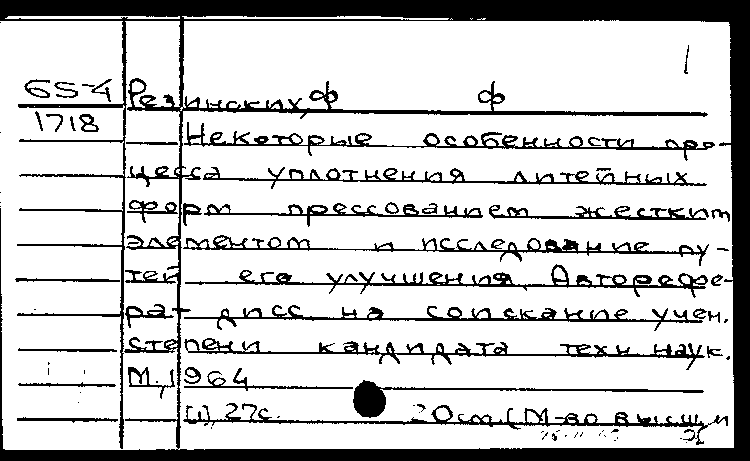 65-4 Резинских, Ф Ф
1718 Некоторые особенности про-
цесса уплотнения литейных
форм прессованием жестким
элементом и исследование пу-
тей его улучшения. Авторефе-
рат дисс. на соискание учен.
степени кандидата техн. наук.
М., 1964
[1], 27с. 20см. (М-во высш. и